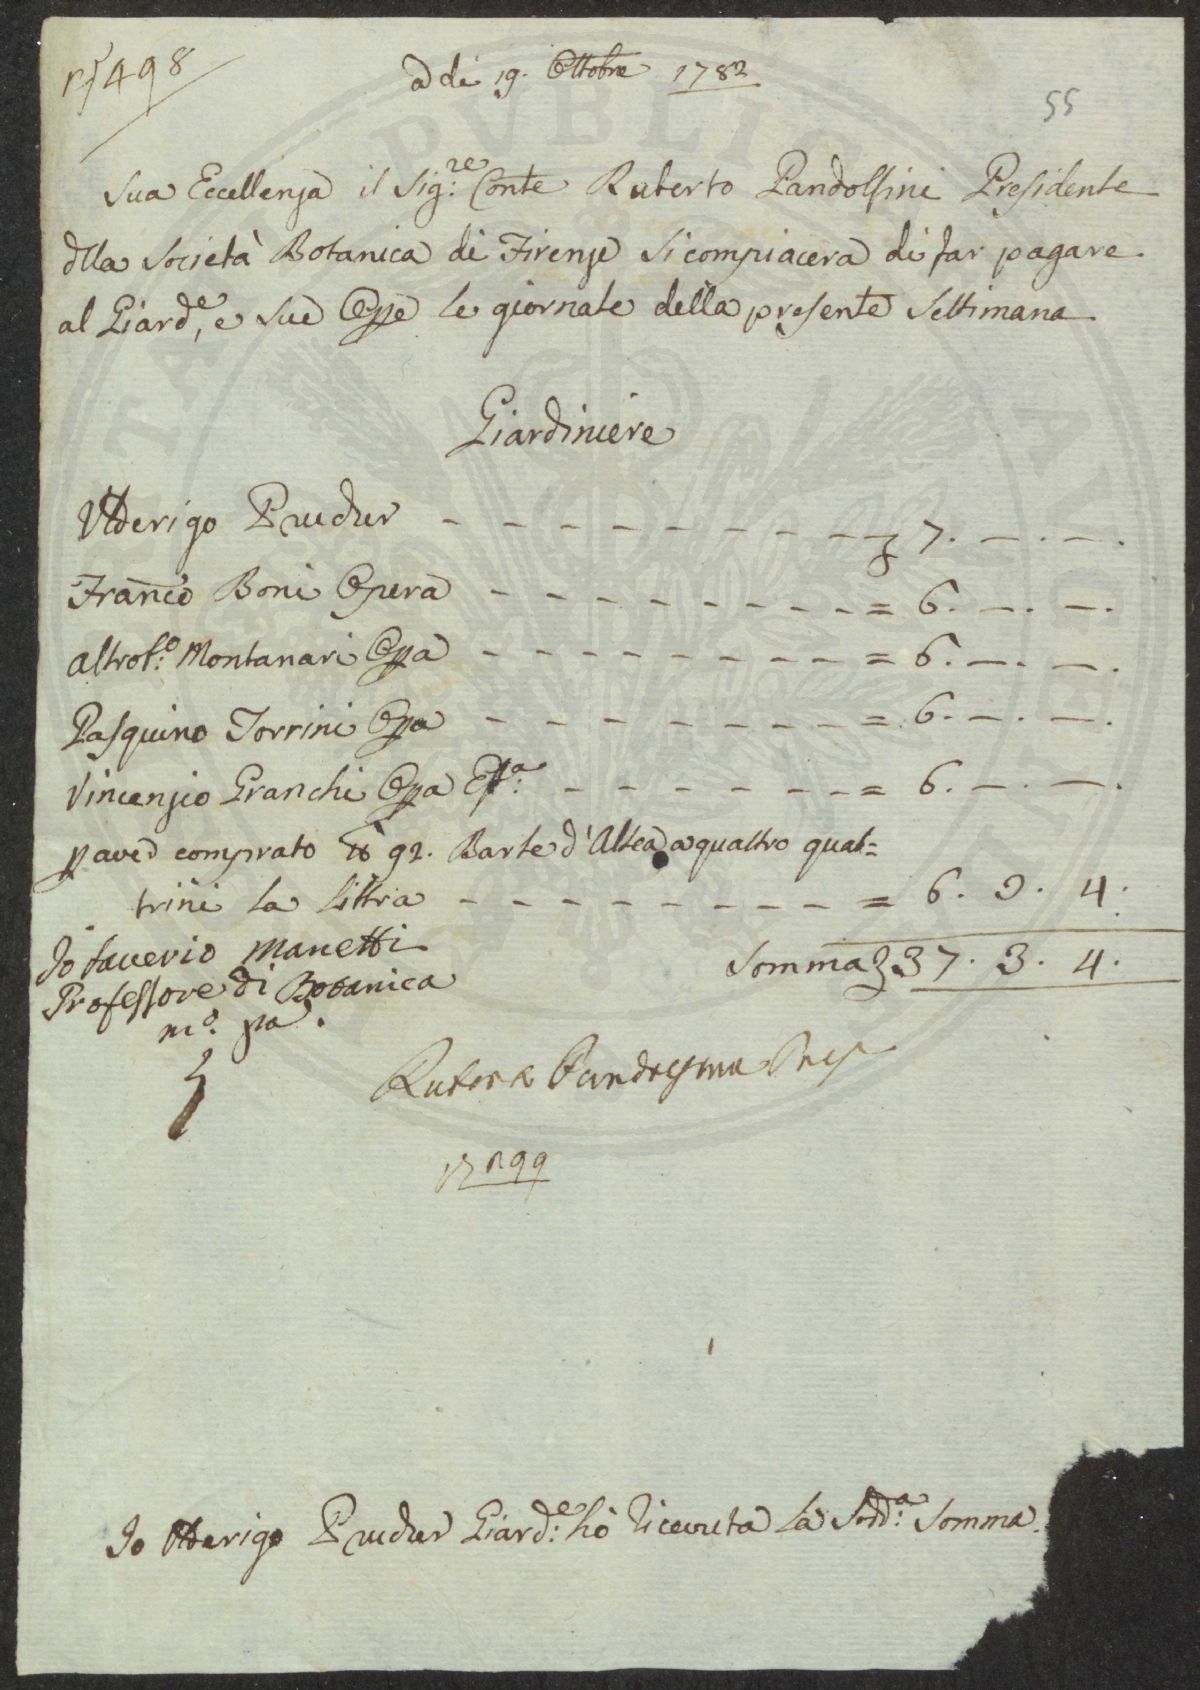 498
a dì 19. Ottobre 1782
55
Sua Eccellenza il Sig:re Conte Ruberto Pandolfini Presidente
dlla Società Botanica di Firenze si compiacerà di far pagare
al Giard.e, e sue Oppe le giornate della presente Settimana
Giardiniere
Uderigo Prucher 7. —. —.
Franco Boni Opera = 6. —. —.
altro f:o Montanari Oppa = 6. —. —.
Pasquino Torrini Oppa = 6. —. —.
Vincenzio Granchi Oppa = 6. —. —.
p aver comprato 92. Barbe d'Altea a quattro quat=
trini la Libbra = 6. 3. 4.
Io Saverio Manetti Somma 37. 3. 4.
Professore di Botanica
m:o pa.
Ruberto Pandolfini Pres
Io Uderigo Prucher Giard:e hò ricevuta la Sodd:a Somma.